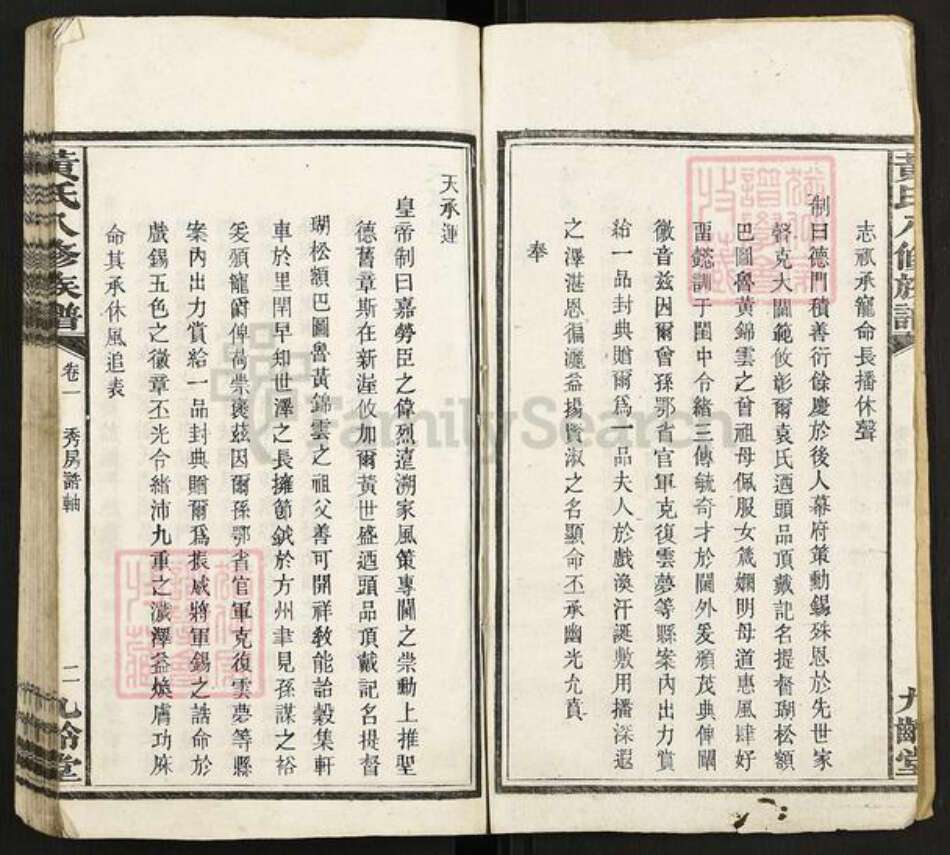 黃氏八修族譜
九齡堂
志祇承寵命長播休聲
制曰德門積善衍餘慶於後人幕府策勳錫殊恩於先世家
聲克大閫範攸彰爾袁氏迺頭品頂戴記名提督瑚松額
巴圖魯黃錦雲之曾祖母佩服女箴嫻明母道惠風肆好
留懿訓于閨中令緒三傳毓奇才於閫外爰頒茂典俾闡
徽音茲因爾曾孫鄂省官軍克復雲夢等縣案內出力賞
給一品封典贈爾爲一品夫人於戲渙汗誕敷用播深遐
之澤湛恩徧灑益揚賢淑之名顯命丕承幽光允賁
奉
天承運
皇帝制曰嘉勞臣之偉烈遠溯家風策專閫之崇勳上推聖
德舊章斯在新渥攸加爾黃世盛迺頭品頂戴記名提督
瑚松額巴圖魯黃錦雲之祖父善可開祥敎能詒穀集軒
車於里閈早知世澤之長擁節鉞於方州聿見孫謀之裕
爰頒寵爵俾荷崇褒茲因爾孫鄂省官軍克復雲夢等縣
案內出力賞給一品封典贈爾爲振威將軍錫之誥命於
戲錫五色之徽章丕光令緒沛九重之濊澤益煥膚功庥
命其承休風追表
黃氏八修族譜
卷一
秀房誥軸
二
九齡堂
FamilySearch